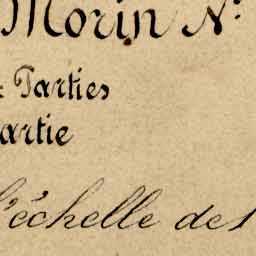 Morin N:
: Parties
artie
l'échelle des